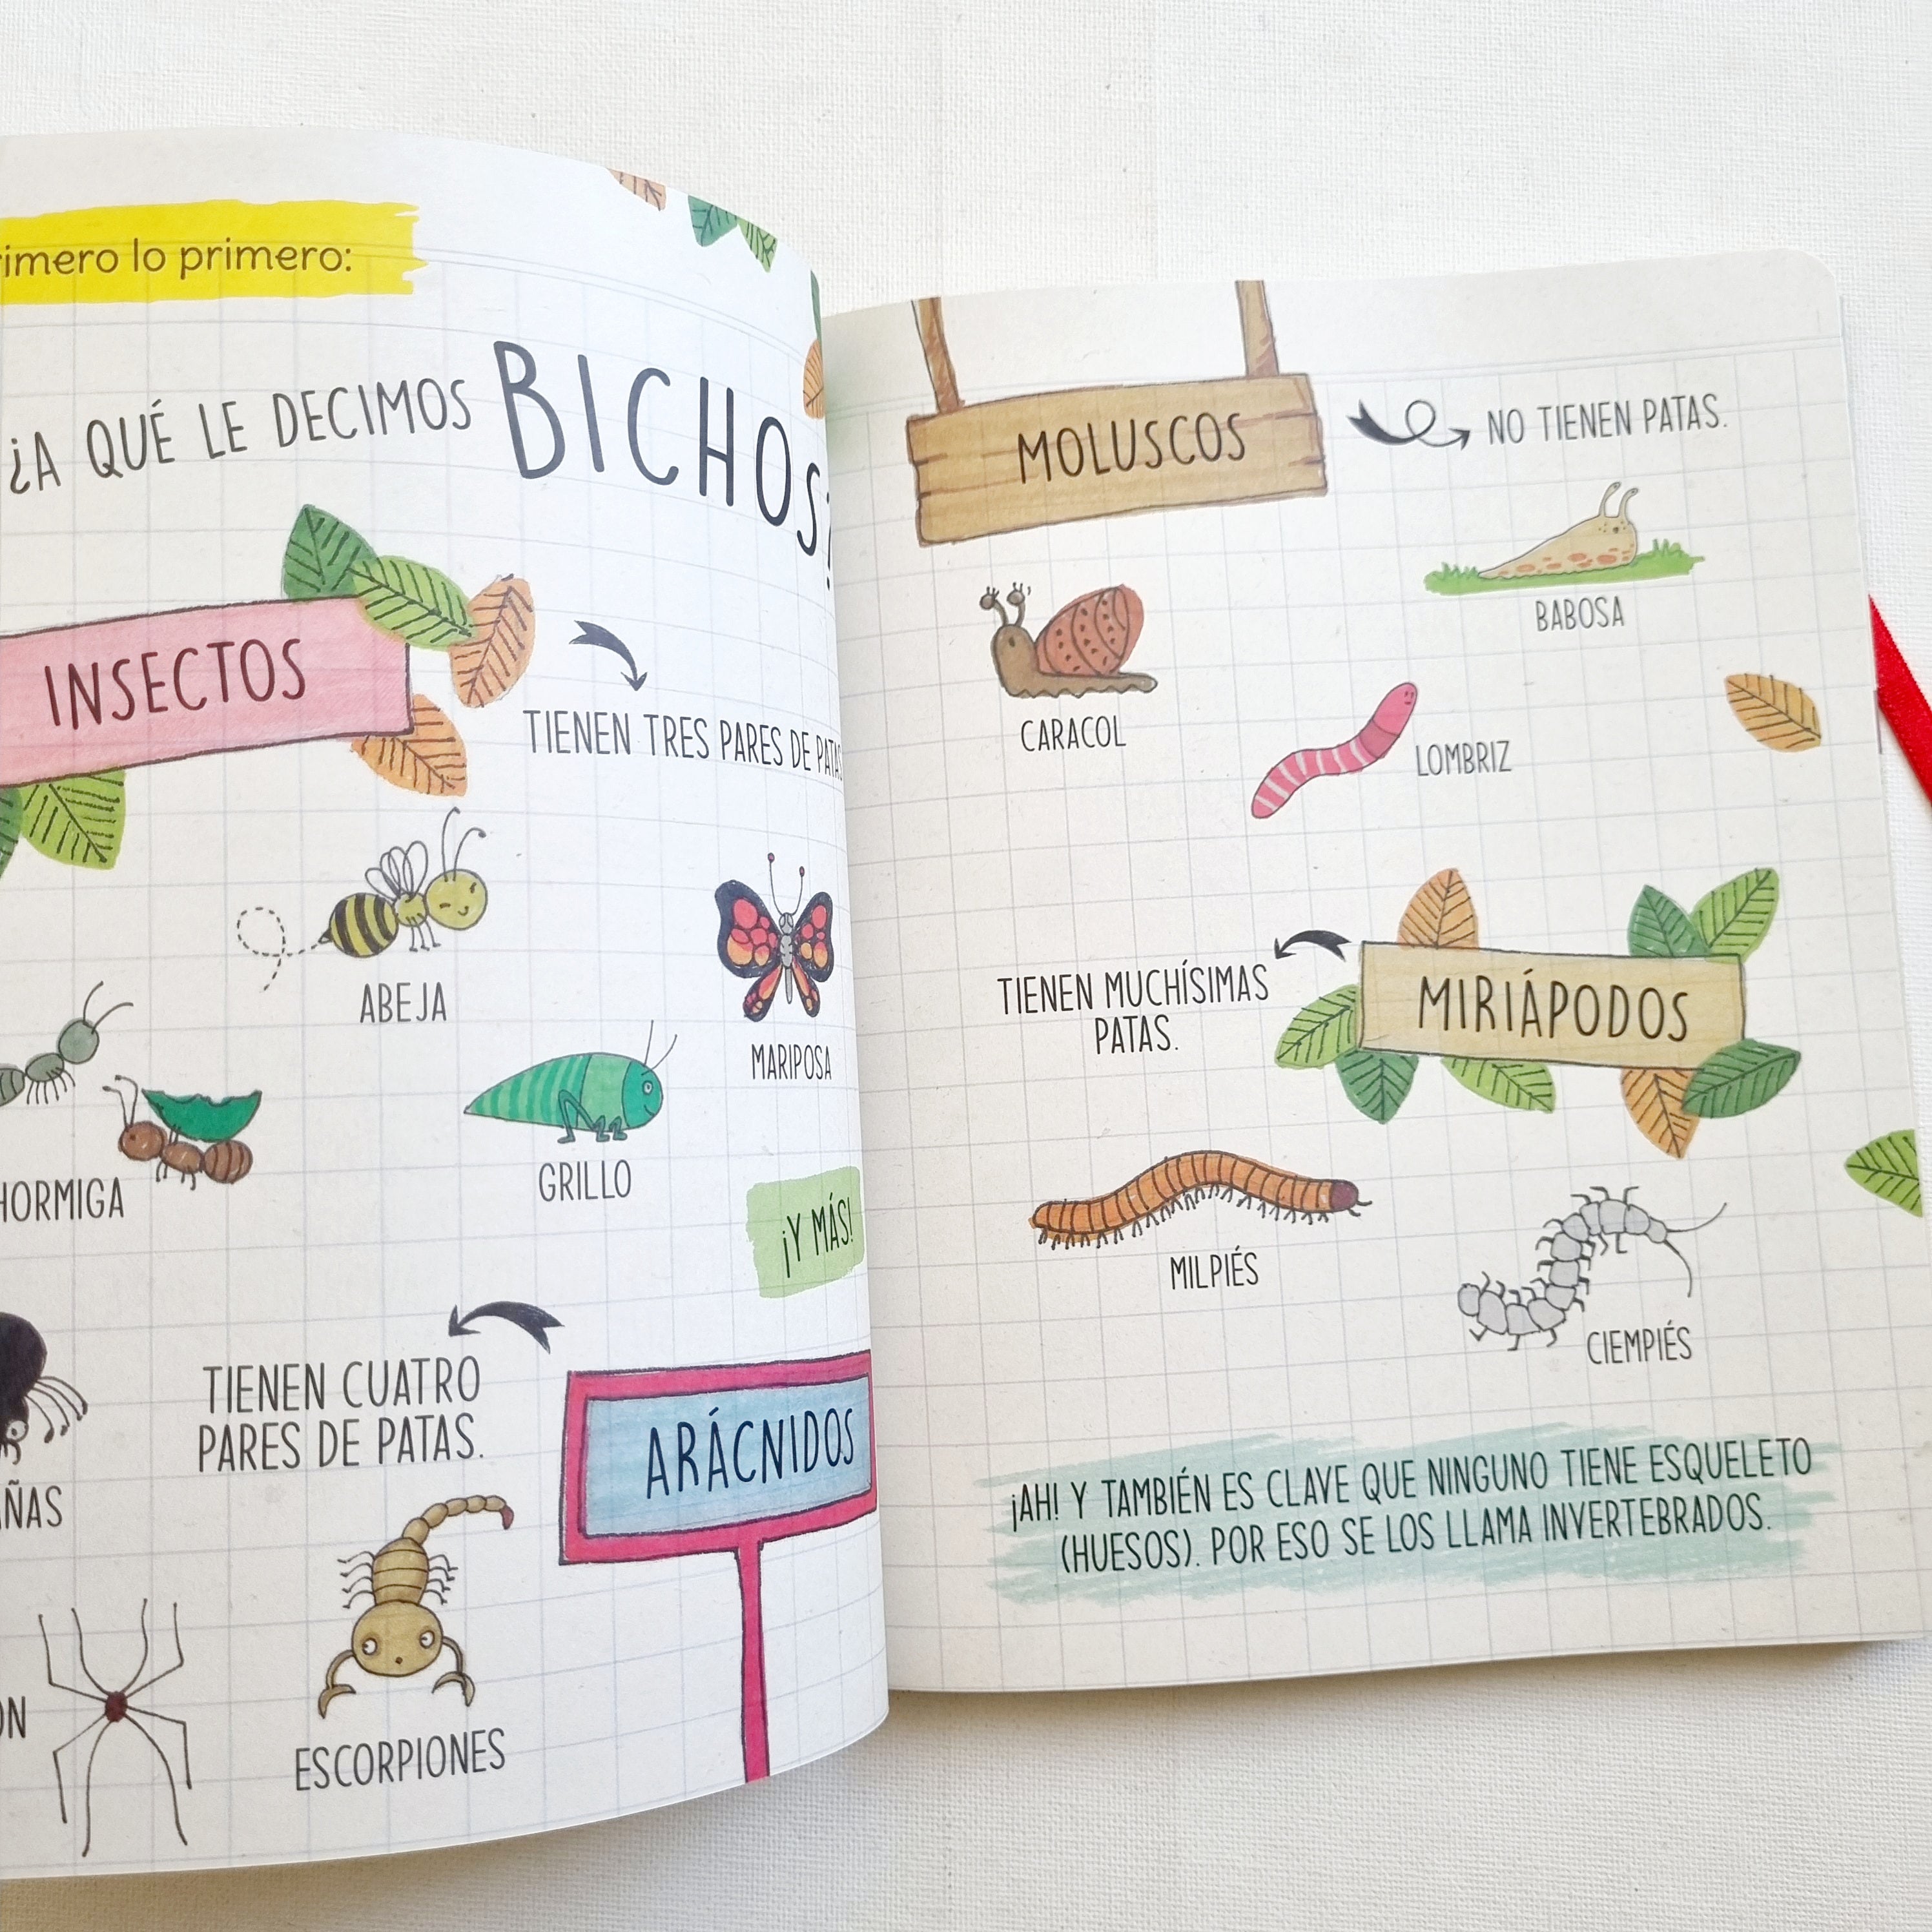 lo primero:
¿A QUÉ LE DECIMOS BICHOS?
INSECTOS
TIENEN TRES PARES DE PATAS
ABEJA
MARIPOSA
HORMIGA
GRILLO
¡Y MÁS!
TIENEN CUATRO
PARES DE PATAS.
ARÁCNIDOS
ESCORPIONES
MOLUSCOS
NO TIENEN PATAS.
BABOSA
CARACOL
LOMBRIZ
TIENEN MUCHÍSIMAS
PATAS.
MIRIÁPODOS
MILPIÉS
CIEMPIÉS
¡AH! Y TAMBIÉN ES CLAVE QUE NINGUNO TIENE ESQUELETO
(HUESOS). POR ESO SE LOS LLAMA INVERTEBRADOS.